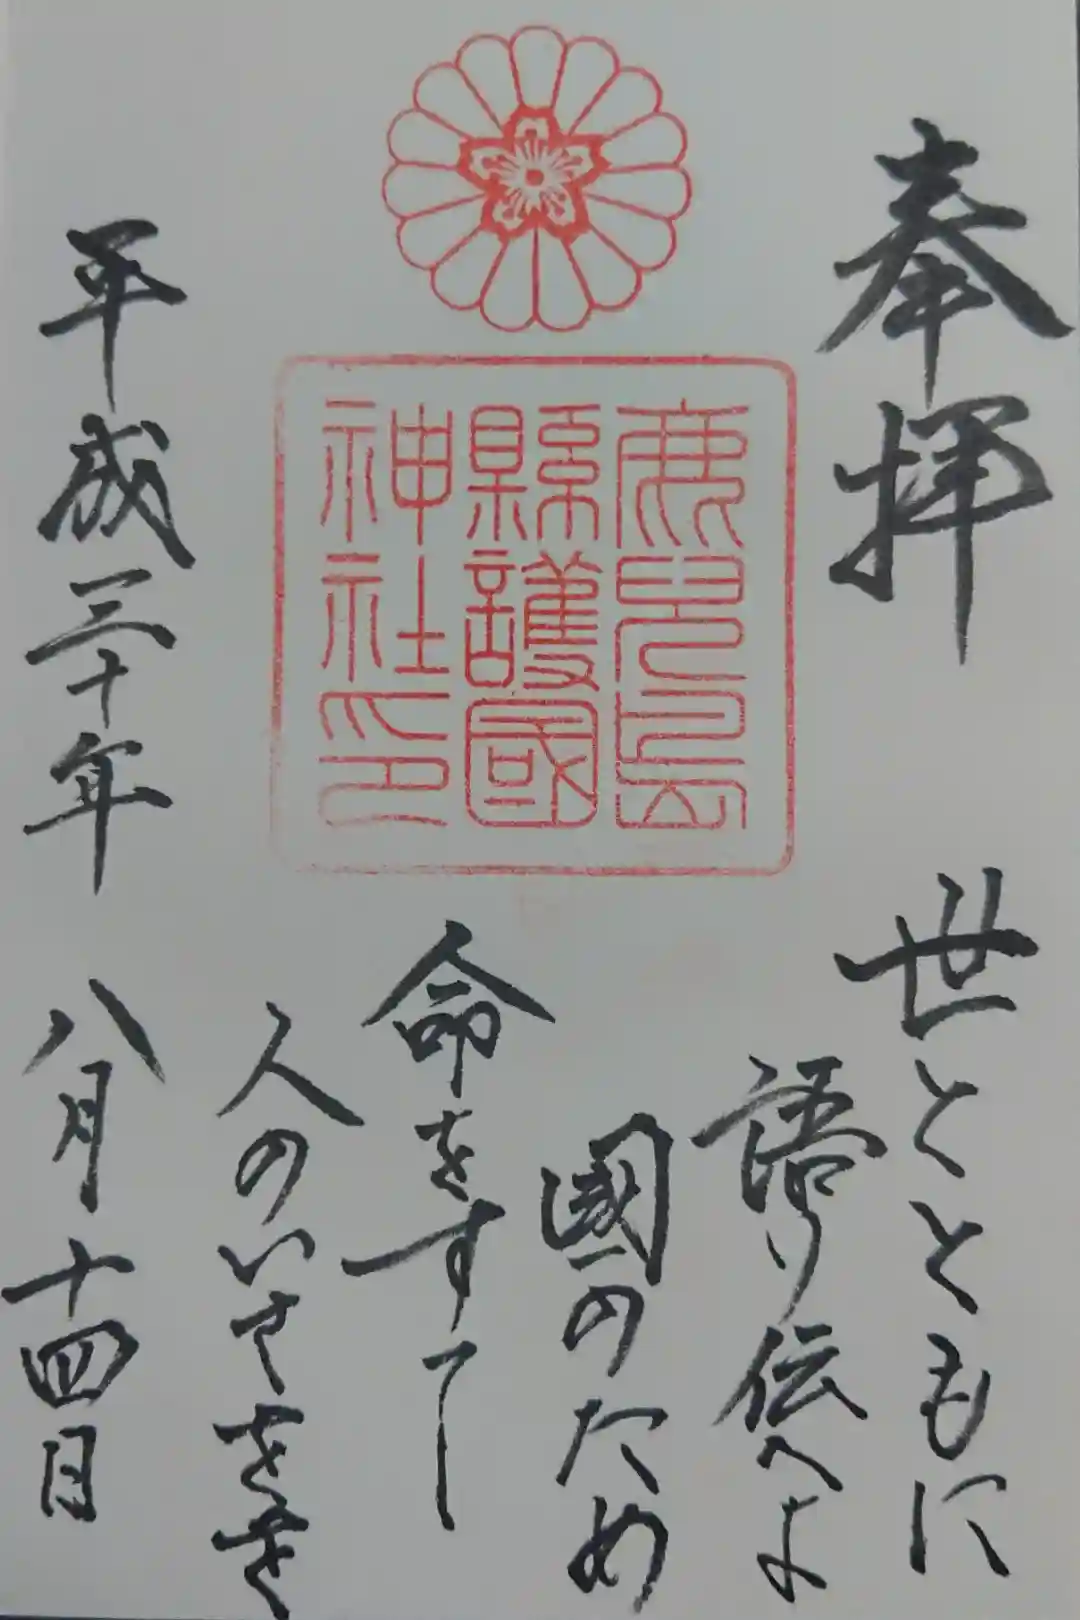 奉拝
世とともに
語り伝へよ
國のため
命をすてし
人のいさをを
鹿兒島
縣護國
神社印
平成三十年 八月十四日